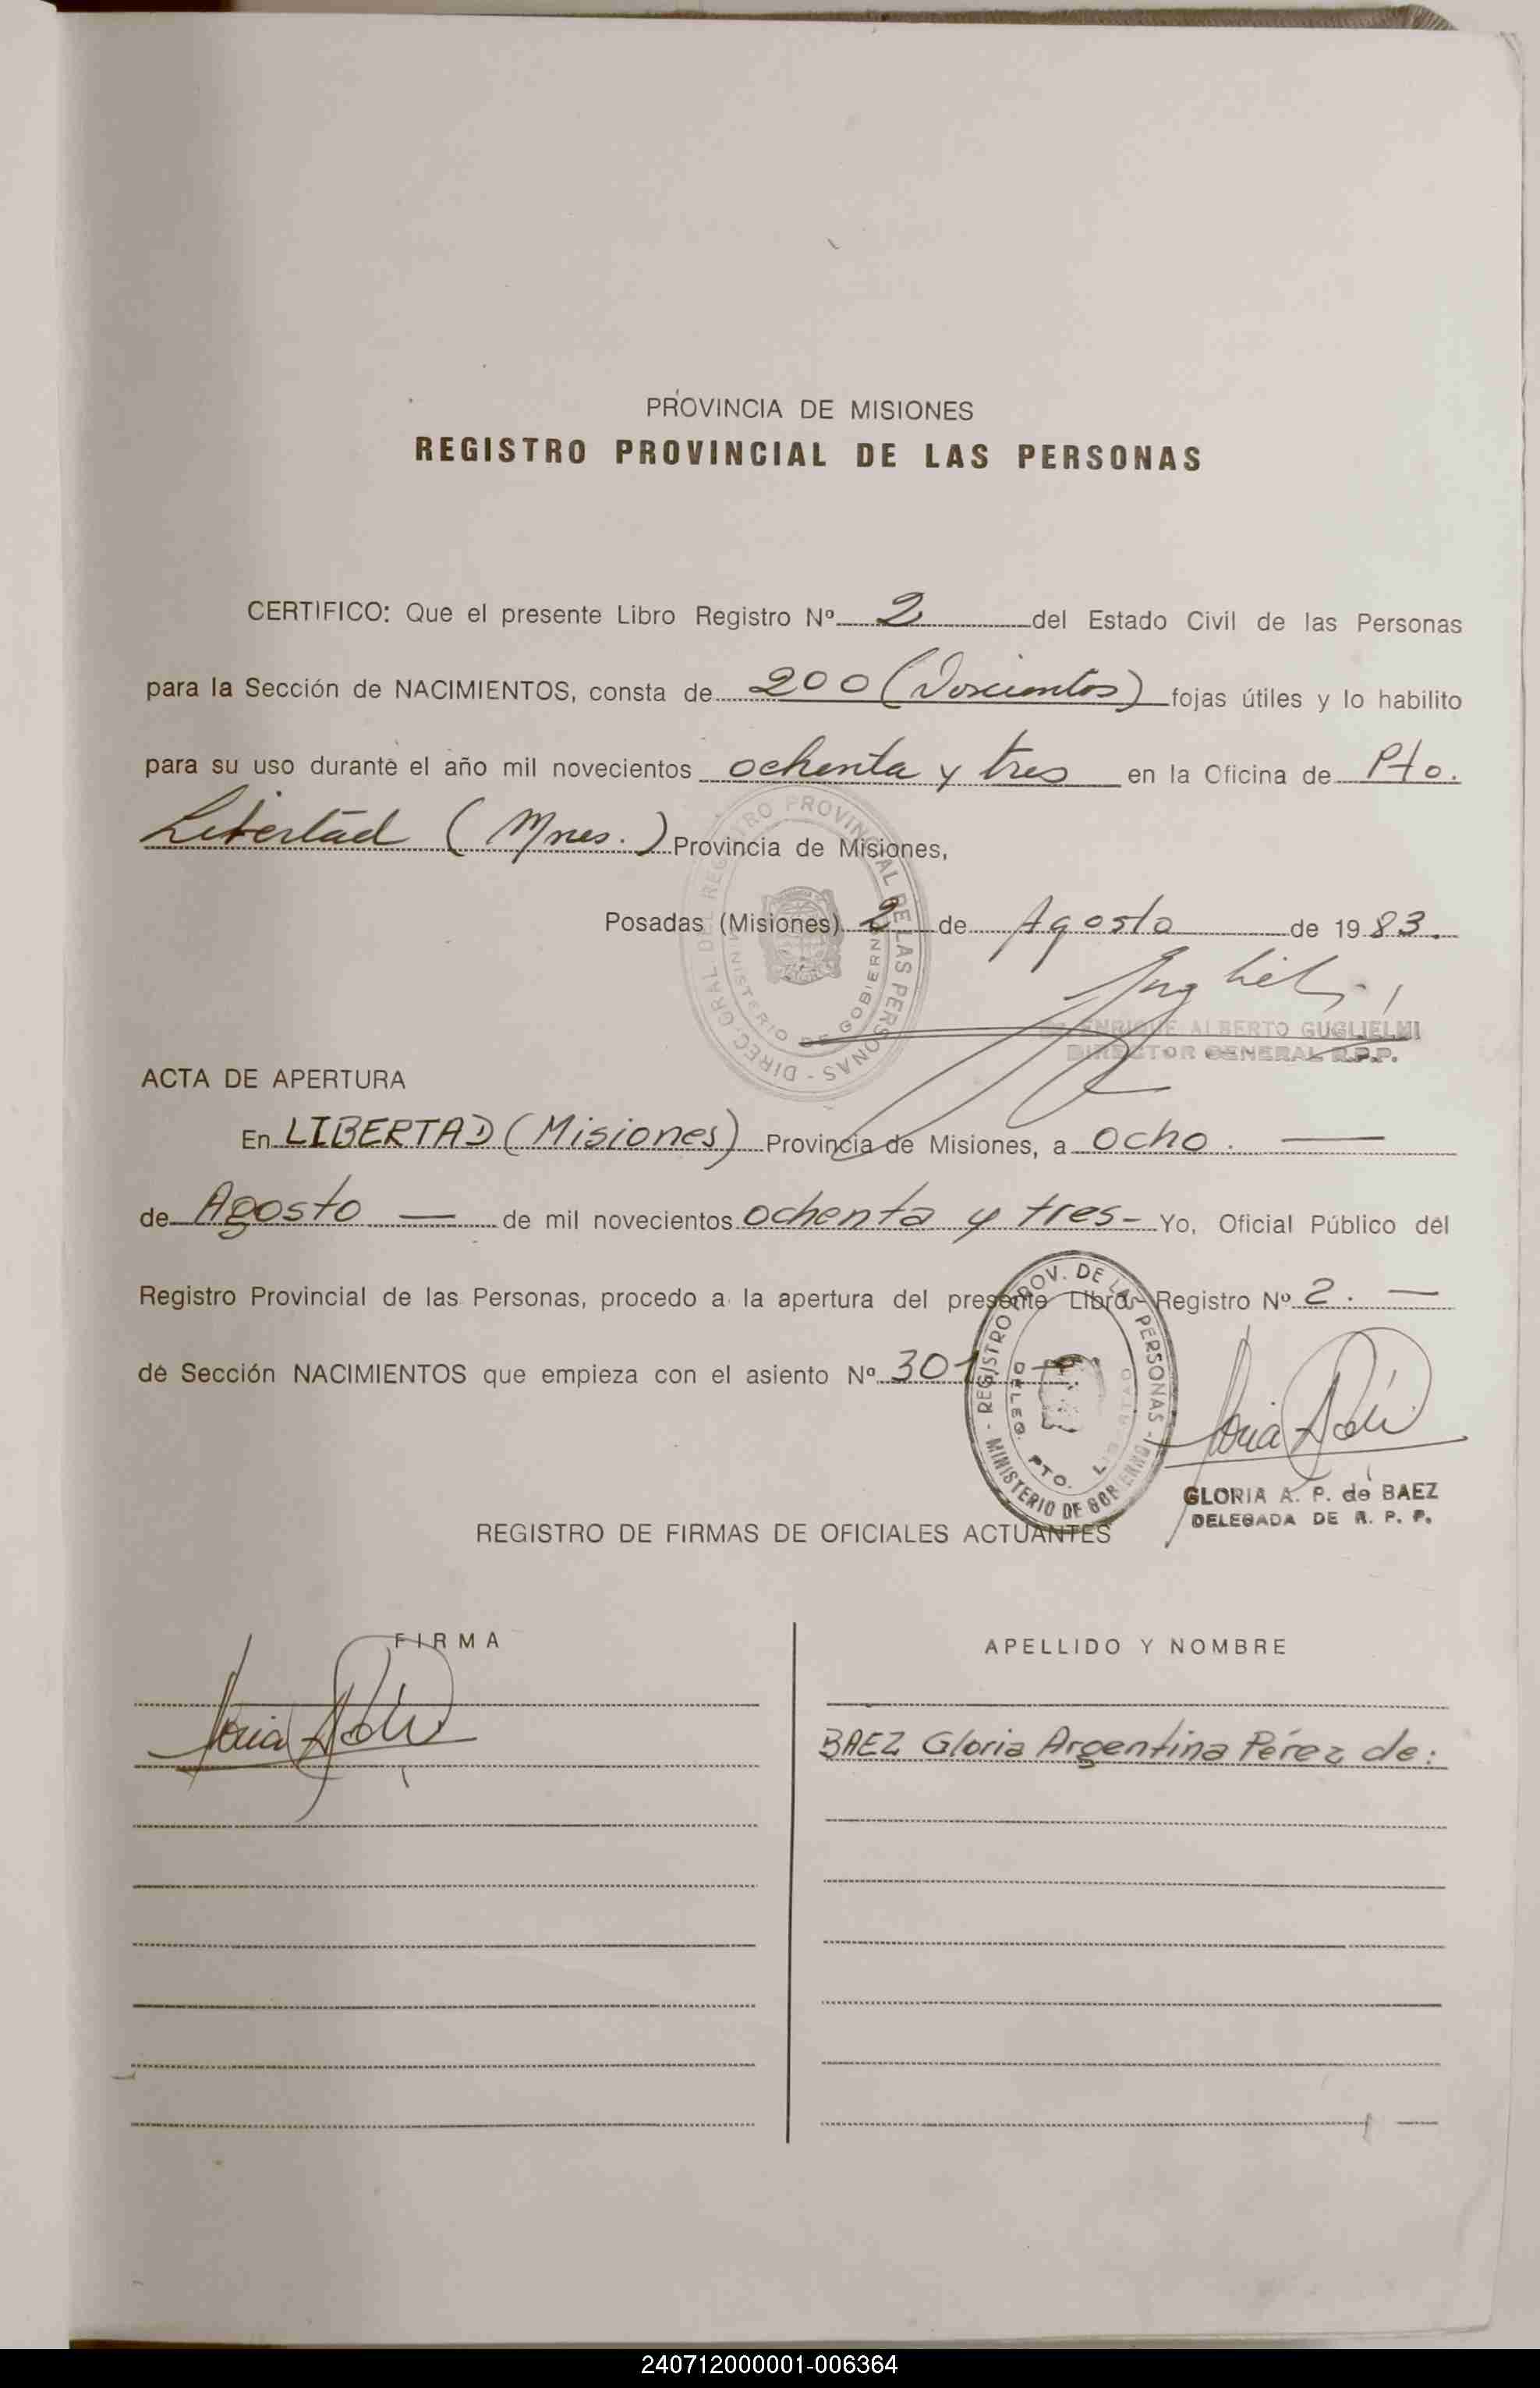 PROVINCIA DE MISIONES
REGISTRO PROVINCIAL DE LAS PERSONAS
CERTIFICO: Que el presente Libro Registro Nº 2 del Estado Civil de las Personas
para la Sección de NACIMIENTOS, consta de 200 (Doscientos) fojas útiles y lo habilito
para su uso durante el año mil novecientos ochenta y tres en la Oficina de Pto.
Libertad (Mnes.) Provincia de Misiones,
DIREC. GRAL DEL REGISTRO PROVINCIAL DE LAS PERSONAS -
MINISTERIO DE GOBIERNO
Posadas (Misiones) 2 de Agosto de 1983.
ENRIQUE ALBERTO GUGLIELMI
DIRECTOR GENERAL R.P.P.
ACTA DE APERTURA
En LIBERTAD (Misiones) Provincia de Misiones, a ocho. —
de Agosto — de mil novecientos ochenta y tres - Yo, Oficial Público del
Registro Provincial de las Personas, procedo a la apertura del presente Libro Registro Nº 2. —
de Sección NACIMIENTOS que empieza con el asiento Nº 301
- REGISTRO PROV. DE LAS PERSONAS -
MINISTERIO DE GOBIERNO
DELEG. PTO. LIBERTAD
GLORIA A. P. de BAEZ
DELEGADA DE R. P. P.
REGISTRO DE FIRMAS DE OFICIALES ACTUANTES
FIRMA
APELLIDO Y NOMBRE
BAEZ Gloria Argentina Pérez de:
240712000001-006364